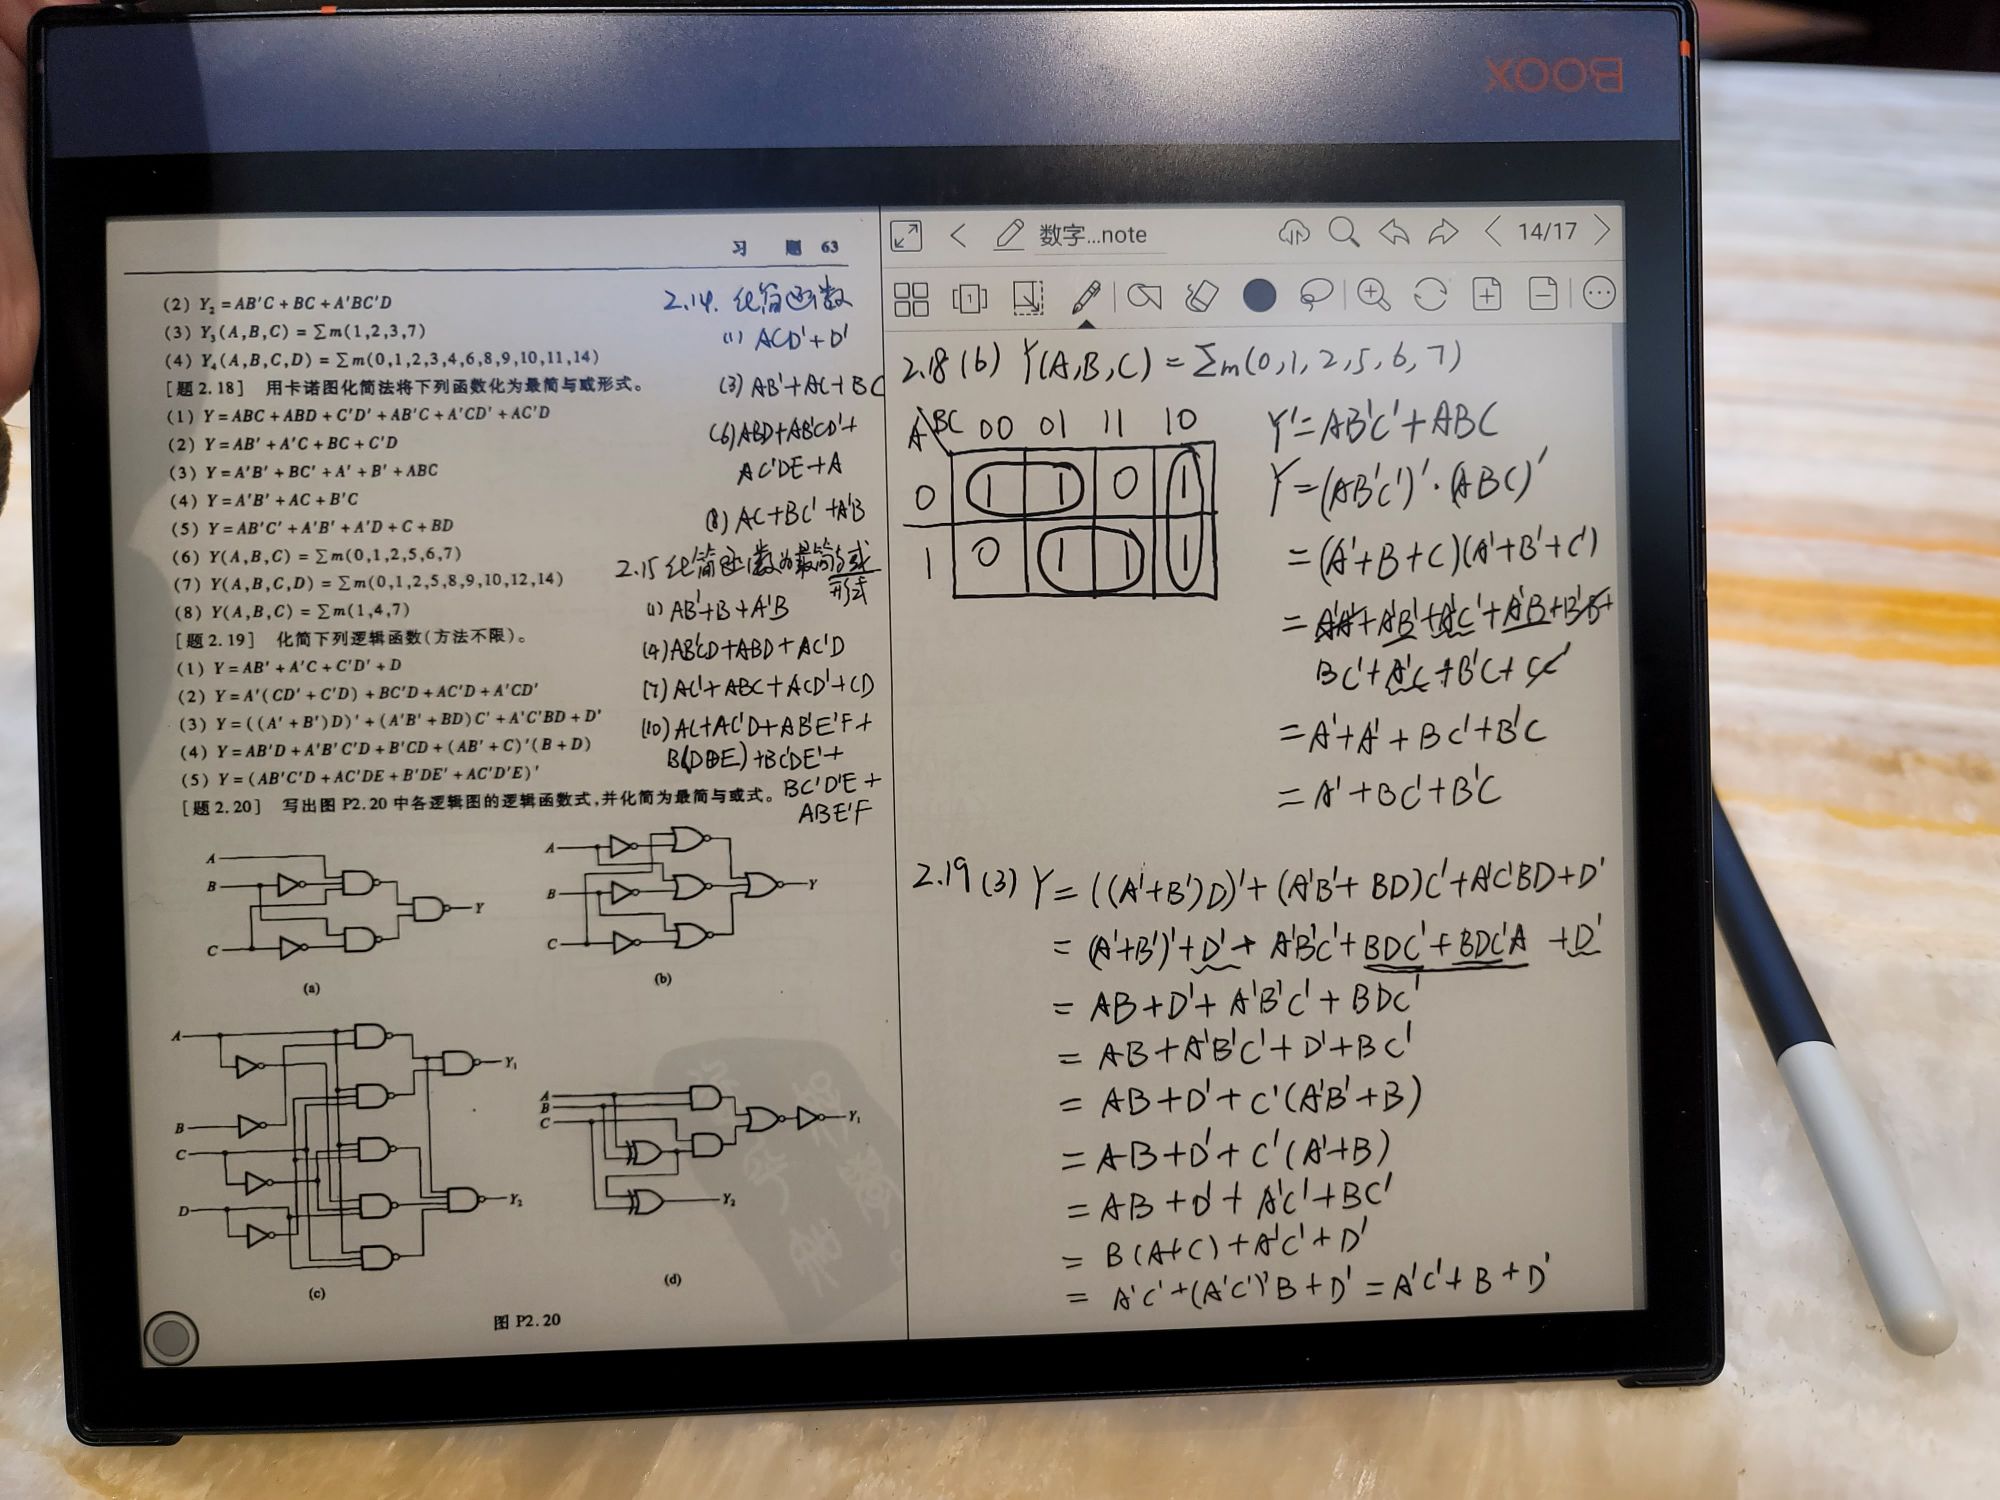 BOOX
习 题 63
(2) Y₂ = AB'C + BC + A'BC'D
(3) Y₃(A,B,C) = ∑m(1,2,3,7)
(4) Y₄(A,B,C,D) = ∑m(0,1,2,3,4,6,8,9,10,11,14)
[题2.18] 用卡诺图化简法将下列函数化为最简与或形式。
(1) Y = ABC + ABD + C'D' + AB'C + A'CD' + AC'D
(2) Y = AB' + A'C + BC + C'D
(3) Y = A'B' + BC' + A' + B' + ABC
(4) Y = A'B' + AC + B'C
(5) Y = AB'C' + A'B' + A'D + C + BD
(6) Y(A,B,C) = ∑m(0,1,2,5,6,7)
(7) Y(A,B,C,D) = ∑m(0,1,2,5,8,9,10,12,14)
(8) Y(A,B,C) = ∑m(1,4,7)
[题2.19] 化简下列逻辑函数(方法不限)。
(1) Y = AB' + A'C + C'D' + D
(2) Y = A'(CD' + C'D) + BC'D + AC'D + A'CD'
(3) Y = ((A' + B')D)' + (A'B' + BD)C' + A'C'BD + D'
(4) Y = AB'D + A'B'C'D + B'CD + (AB' + C)'(B + D)
(5) Y = (AB'C'D + AC'DE + B'DE' + AC'D'E)'
[题2.20] 写出图 P2.20 中各逻辑图的逻辑函数式,并化简为最简与或式。
2.14. 化简函数
(1) ACD'+D'
(3) AB'+AC+BC
(6) ABD+AB'CD'+
AC'DE+A
(8) AC+BC'+A'B
2.15 化简函数为最简与或
形式
(1) AB'+B+A'B
(4) AB'CD+ABD+AC'D
(7) AC'+ABC+ACD'+CD
(10) AC+AC'D+AB'E'F+
B(D⊕E)+BC'DE'+
BC'D'E+
ABE'F
A
B
C
Y
(a)
A
B
C
Y
(b)
A
B
C
D
Y₁
Y₂
(c)
A
B
C
Y₁
Y₂
(d)
图 P2.20
数字...note
14/17
2.18 (6) Y(A,B,C) = ∑m(0,1,2,5,6,7)
A BC 00 01 11 10
0 1 1 0 1
1 0 1 1 1
Y'=AB'C'+ABC
Y=(AB'C')'·(ABC)'
=(A'+B+C)(A'+B'+C')
=A'A'+A'B'+A'C'+A'B+B'B+
BC'+A'C+B'C+CC'
=A'+A'+BC'+B'C
=A'+BC'+B'C
2.19 (3) Y=((A'+B')D)'+(A'B'+BD)C'+A'C'BD+D'
=(A'+B')'+D'+A'B'C'+BDC'+BDC'A+D'
=AB+D'+A'B'C'+BDC'
=AB+A'B'C'+D'+BC'
=AB+D'+C'(A'B'+B)
=AB+D'+C'(A'+B)
=AB+D'+A'C'+BC'
=B(A+C')+A'C'+D'
=A'C'+(A'C')'B+D'=A'C'+B+D'